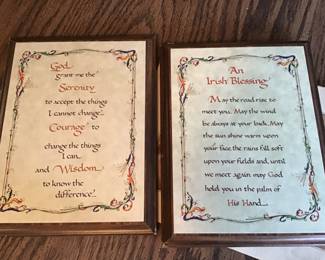 God
grant me the
Serenity
to accept the things
I cannot change...
Courage to
change the things
I can,
and Wisdom
to know the
difference!
An
Irish Blessing
May the road rise to
meet you. May the wind
be always at your back. May
the sun shine warm upon
your face, the rains fall soft
upon your fields and, until
we meet again may God
hold you in the palm of
His Hand...